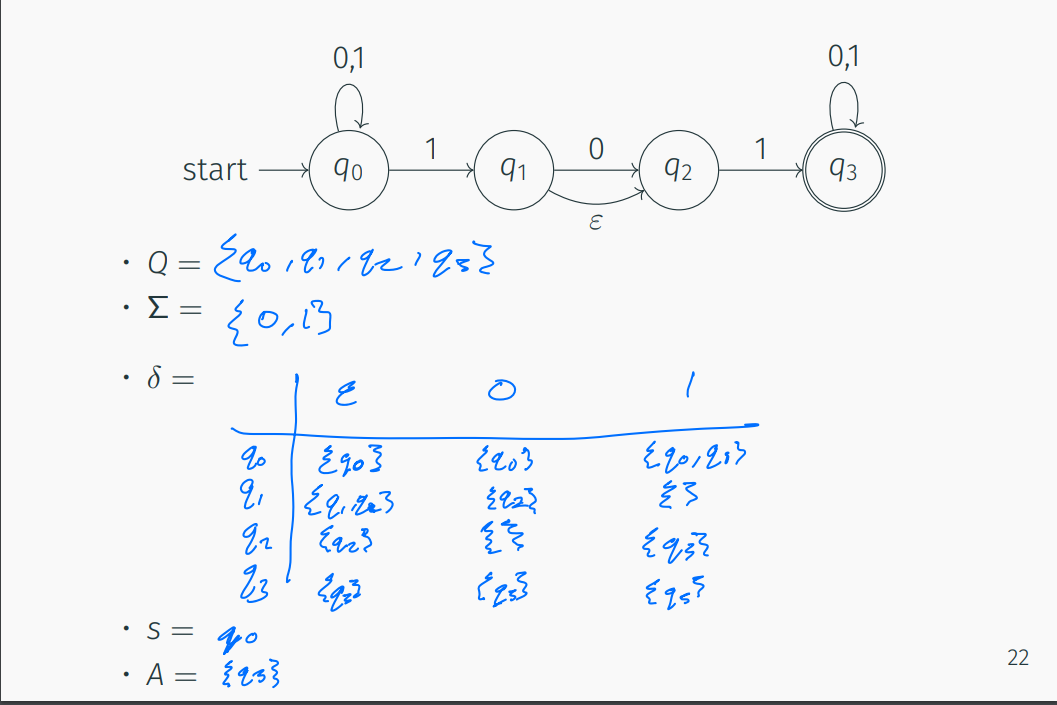 0,1 0,1
start q0 1 q1 0 q2 1 q3
ε
· Q = {q0, q1, q2, q3}
· Σ = {0,1}
· δ =
ε 0 1
q0 {q0} {q0} {q0, q1}
q1 {q1, q2} {q2} { }
q2 {q2} { } {q3}
q3 {q3} {q3} {q3}
· s = q0
· A = {q3}
22